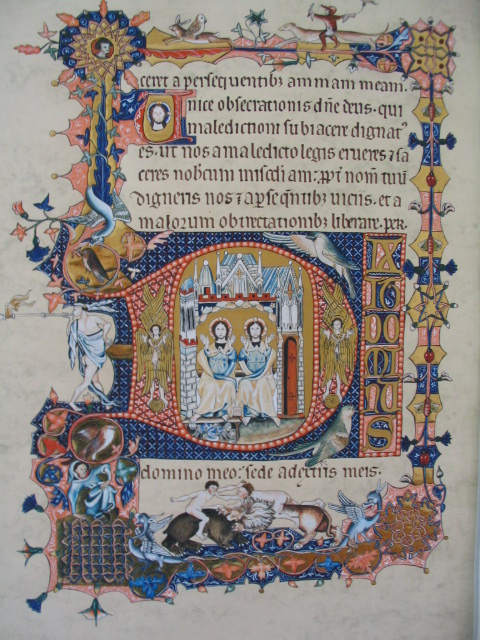 ceret a persequentibꝫ animam meam.
Unice obsecrationis dñe deus. qui
maledictioni subiacere dignatꝰ
es. ut nos a maledicto legis erueres ⁊ fa
digneris nos ⁊ a ꝑseq̄ntibꝫ viciis. et a
malorum obtrectationibꝫ liberare. per.
DIXIT DOMINUS
domino meo: sede a dextris meis.